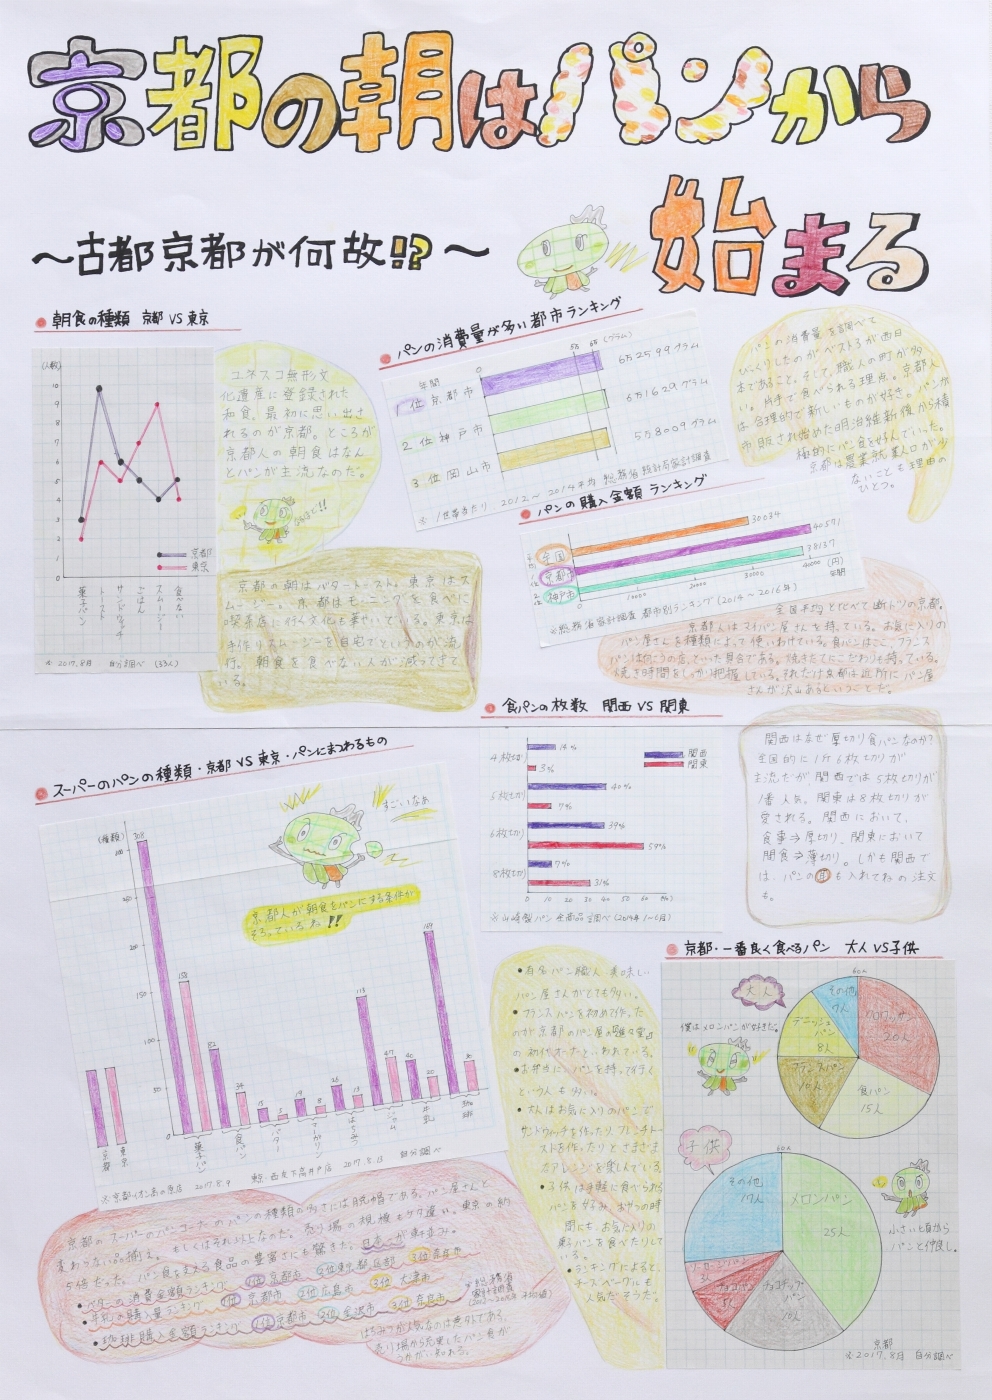 京都の朝はパンから
始まる
～古都京都が何故!?～
朝食の種類 京都 VS 東京
(人数)
京都
東京
菓子パン
トースト
サンドウィッチ
ごはん
スムージー
食べない
※2017.8月 自分調べ (33人)
ユネスコ無形文
化遺産に登録された
和食。最初に思い出さ
れるのが京都。ところが
京都人の朝食はなん
とパンが主流なのだ。
なるほど!!
京都の朝はバタートースト。東京はス
ムージー。京都はモーニングを食べに
喫茶店に行く文化も栄えている。東京は
手作りスムージーを自宅でというのが流
行。朝食を食べない人が減ってきて
いる。
パンの消費量が多い都市ランキング
年間
0
55
65 (グラム)
1位 京都市
652599グラム
2位 神戸市
651629グラム
3位 岡山市
558009グラム
※1世帯当たり 2012～2014平均 総務省統計局家計調査
パンの消費量を調べて
びっくりしたのがベスト3が西日
本であること。そして、職人の町が多
い。片手で食べられる理由。京都人
は合理的で新しいものが好き。パンが
市販され始めた明治維新後から積
極的にパン食を好んでいった。
京都は農業就業人口が少
ないことも理由の
ひとつ。
パンの購入金額ランキング
全国
30034
1位 京都市
40571
2位 神戸市
38137
0
10000
20000
30000
40000 (円)
年間
※総務省家計調査 都市別ランキング(2014～2016年)
全国平均と比べて断トツの京都。
京都人はマイパン屋さんを持っている。お気に入りの
パン屋さんを種類によって使いわけている。食パンはここ、フランス
パンは向こうの店、といった具合である。焼きたてにこだわりも持っている。
焼き時間をしっかり把握している。それだけ京都は近所にパン屋
さんが沢山あるということだ。
食パンの枚数 関西 VS 関東
4枚切り
14%
3%
関西
関東
5枚切り
40%
9%
6枚切り
39%
59%
8枚切り
7%
31%
0 10 20 30 40 50 60 (%)
※山崎製パン 全商品調べ(2014年1-6月)
関西はなぜ厚切り食パンなのか?
全国的に1斤6枚切りが
主流だが関西では5枚切りが
1番人気。関東は8枚切りが
愛される。関西において、
食事→厚切り、関東において
間食→薄切り。しかも関西で
は、パンの耳も入れてねの注文
も。
スーパーのパンの種類・京都 VS 東京・パンにまつわるもの
(種類)
308
すごいなぁ
京都人が朝食をパンにする条件が
そろっているね!!
京都
東京
菓子パン
食パン
バター
マーガリン
はちみつ
ジャム
牛乳
珈琲
※京都イオン高の原店 2017.8.9 東京 西友下高井戸店 2017.8.13 自分調べ
京都のスーパーのパンコーナーのパンの種類の多さには脱帽である。パン屋さんと
変わらない品揃え。もしくはそれ以上なのだ。売り場の規模もケタ違い。東京の約
5倍だった。パン食を支える食品の豊富さにも驚きた。日本一が軒並み。
・バターの消費金額ランキング 1位京都市 2位東京都区部 3位奈良市
・牛乳の購入量ランキング 1位京都市 2位広島市 3位大津市
・珈琲購入金額ランキング 1位京都市 2位金沢市 3位奈良市
はちみつが人気なのは意外である。
売り場から充実したパン食が
うかがい知れる。
・有名パン職人、美味しい
パン屋さんがとても多い。
・フランスパンを初めて作った
のが京都のパン屋の進々堂
の初代オーナーといわれている。
・お弁当にパンを持って行く
という人も多い。
・大人はお気に入りのパンで
サンドウィッチを作ったり、フレンチトー
ストを作ったりとさまざま
なアレンジを楽しんでいる。
・子供は手軽に食べられる
パンをタイム、おやつの時
間にも、お気に入りの
菓子パンを食べたりして
いる。
・ランキングによると、
チーズベーグルも
人気だそうだ。
京都・一番良く食べるパン 大人 VS 子供
大人
僕はメロンパンが好きだ。
60人
クロワッサン
20人
食パン
15人
フランスパン
10人
デニッシュ
パン
8人
その他
7人
子供
60人
メロンパン
25人
チョコチップ
パン
10人
チョココロネ
5人
ソーセージパン
3人
その他
17人
小さい頃から
パンと仲良し。
京都
※2017.8月 自分調べ